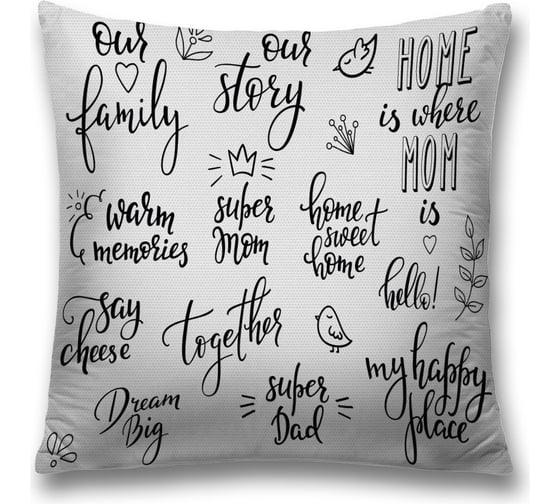 our
family
our
story
HOME
is where
MOM
is
& warm
memories
super
Mom
home
sweet
home
hello!
say
cheese
together
my happy
place
Dream
Big
super
Dad